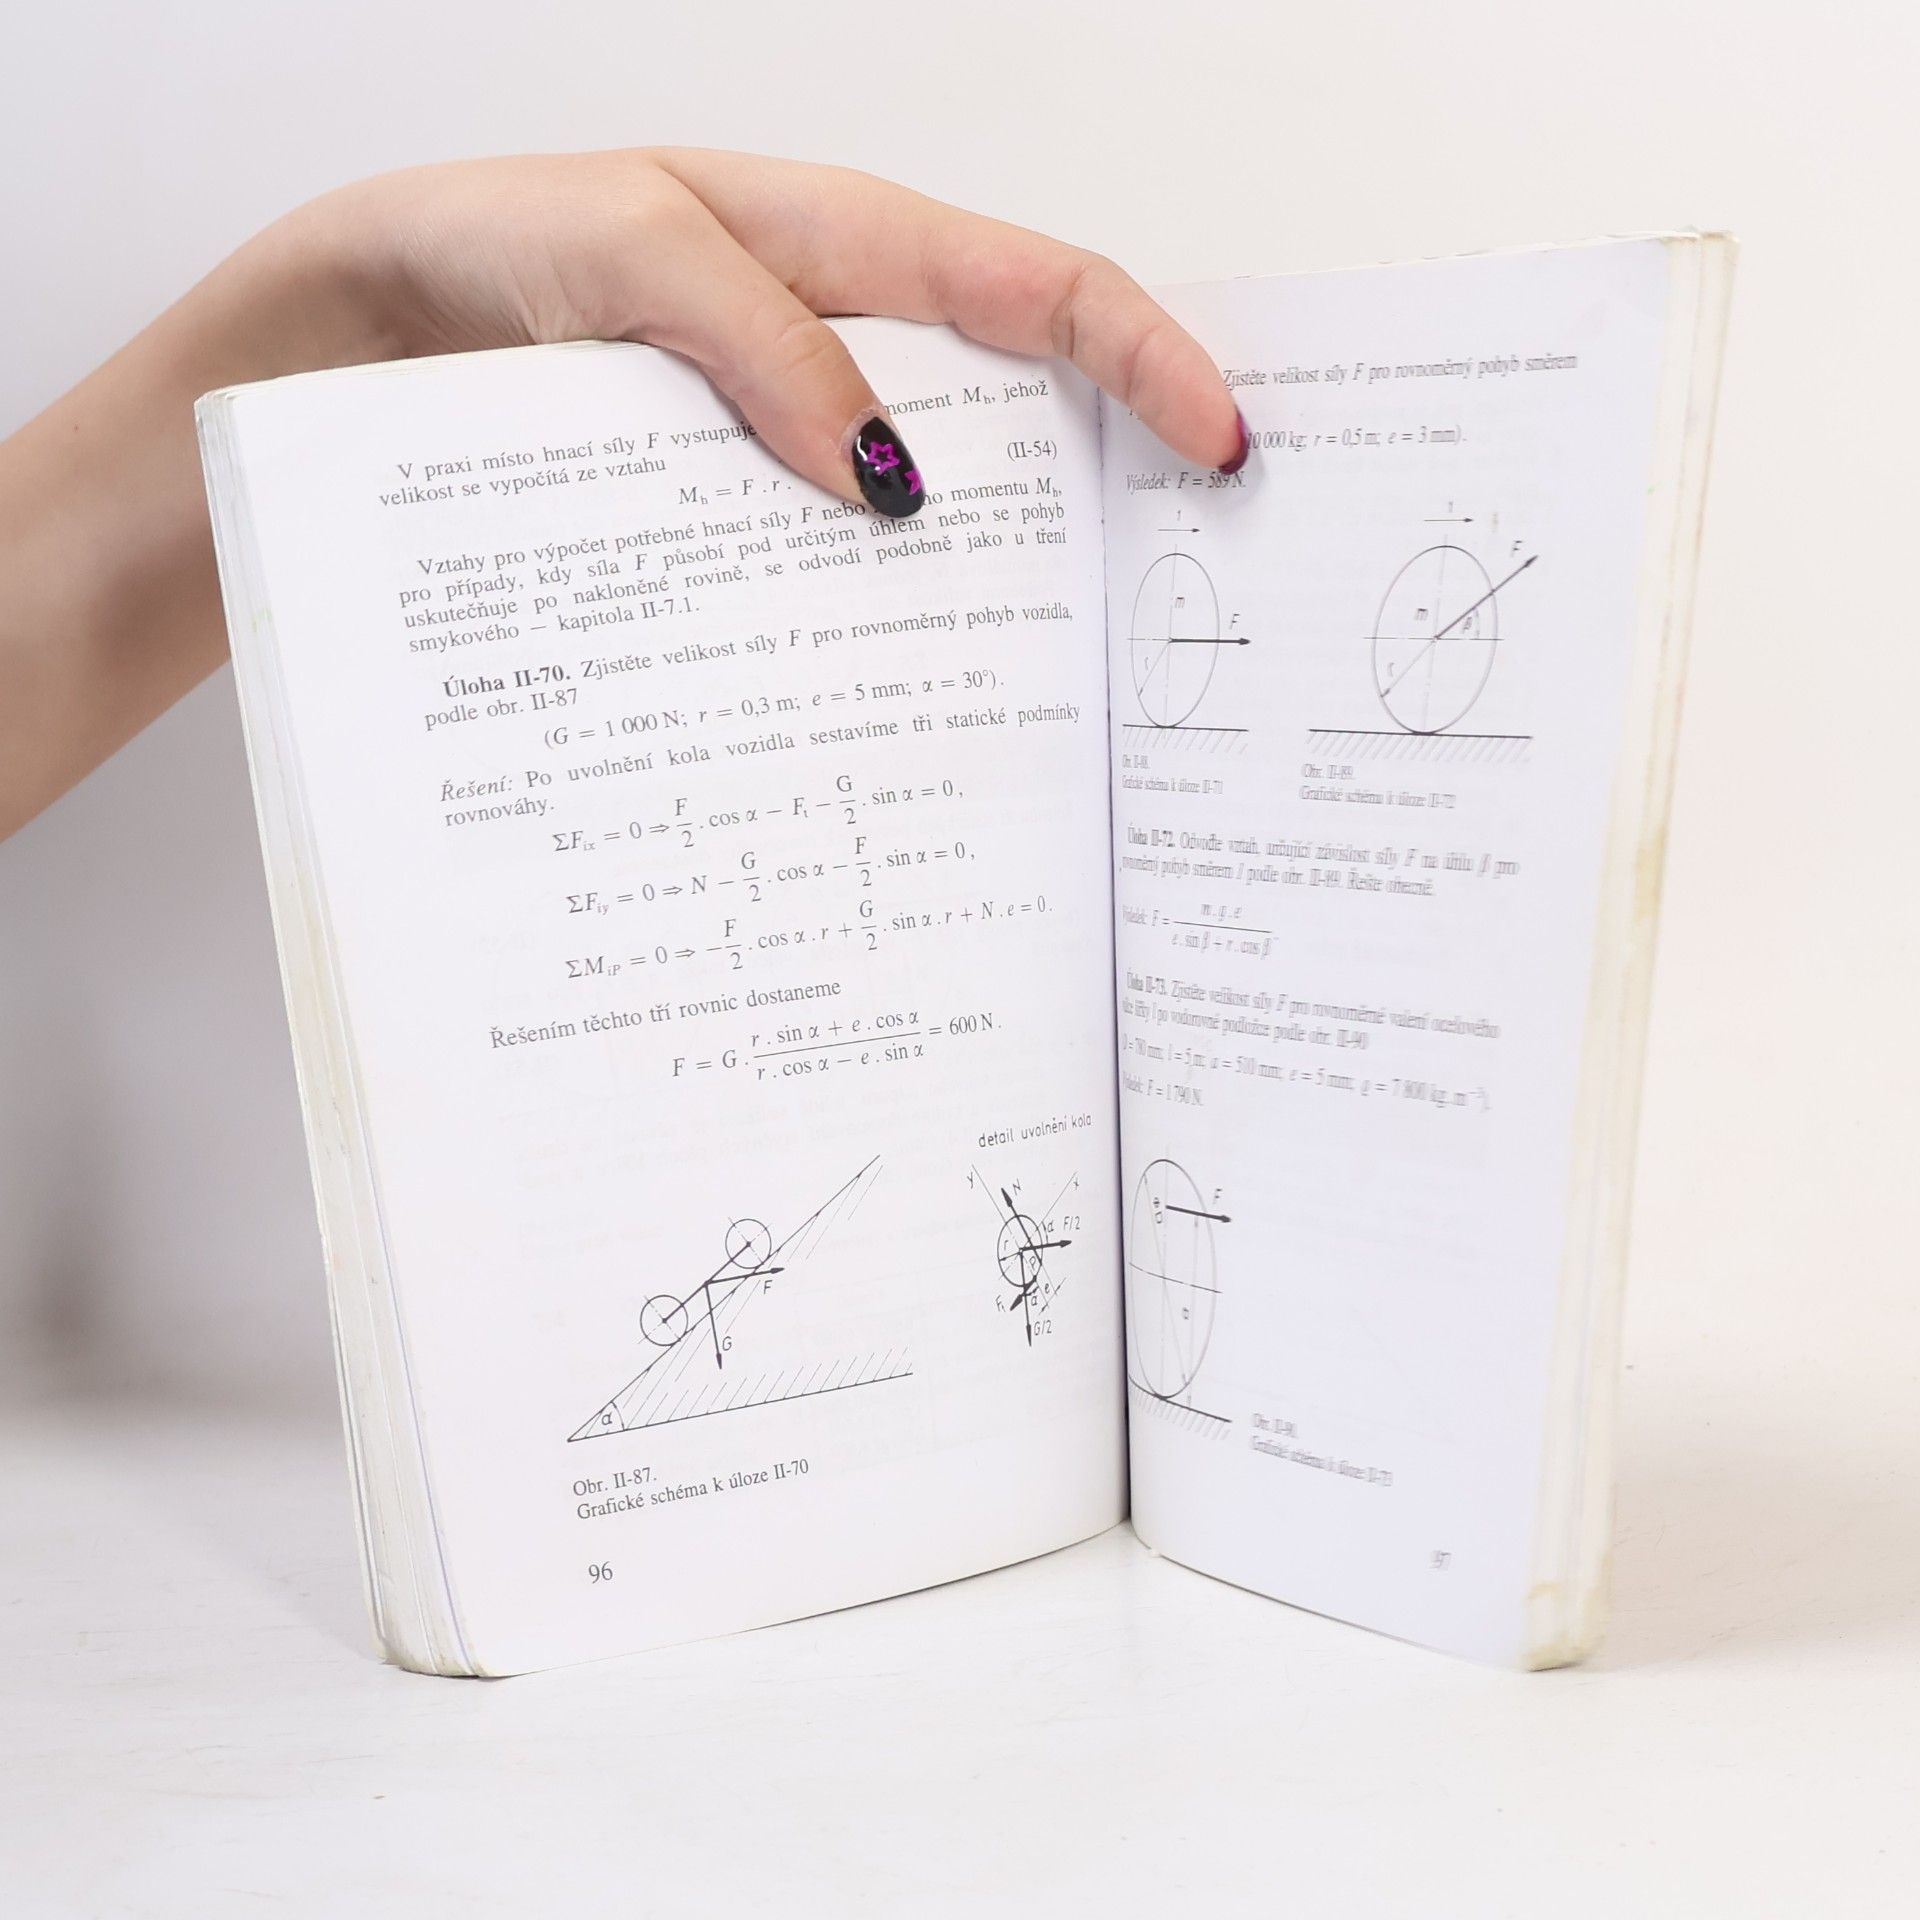 V praxi místo hnací síly F vystupuje moment Mₕ, jehož
velikost se vypočítá ze vztahu
Mₕ = F . r . (II-54)
Vztahy pro výpočet potřebné hnací síly F nebo momentu Mₕ,
pro případy, kdy síla F působí pod určitým úhlem nebo se pohyb
uskutečňuje po nakloněné rovině, se odvodí podobně jako u tření
smykového — kapitola II-7.1.
Úloha II-70. Zjistěte velikost síly F pro rovnoměrný pohyb vozidla,
podle obr. II-87
(G = 1 000 N; r = 0,3 m; e = 5 mm; α = 30°).
Řešení: Po uvolnění kola vozidla sestavíme tři statické podmínky
rovnováhy.
ΣFᵢₓ = 0 ⇒ F/2 . cos α − Fₜ − G/2 . sin α = 0,
ΣF_iy = 0 ⇒ N − G/2 . cos α − F/2 . sin α = 0,
ΣM_iP = 0 ⇒ −F/2 . cos α . r + G/2 . sin α . r + N . e = 0.
Řešením těchto tří rovnic dostaneme
F = G . (r . sin α + e . cos α)/(r . cos α − e . sin α) = 600 N.
detail uvolnění kola
y N x
r α F/2
P
Fₜ α e
G/2
F
G
α
Obr. II-87.
Grafické schéma k úloze II-70
96
Zjistěte velikost síly F pro rovnoměrný pohyb směrem
10 000 kg; r = 0,5 m; e = 3 mm).
Výsledek: F = 589 N.
1
m
F
r
1
F
m
β
r
Obr. II-88.
Grafické schéma k úloze II-71
Obr. II-89.
Grafické schéma k úloze II-72
Úloha II-72. Odvoďte vztah, určující závislost síly F na úhlu β pro
rovnoměrný pohyb směrem 1 podle obr. II-89. Řešte obecně.
Výsledek: F = m . g . e / e . sin β + r . cos β
Úloha II-73. Zjistěte velikost síly F pro rovnoměrné valení ocelového
šířky l po vodorovné podložce podle obr. II-90
D = 780 mm; l = 5 m; a = 500 mm; e = 5 mm; ϱ = 7 800 kg . m⁻³).
Výsledek: F = 1 790 N.
F
a
Obr. II-90.
Grafické schéma k úloze II-73
97